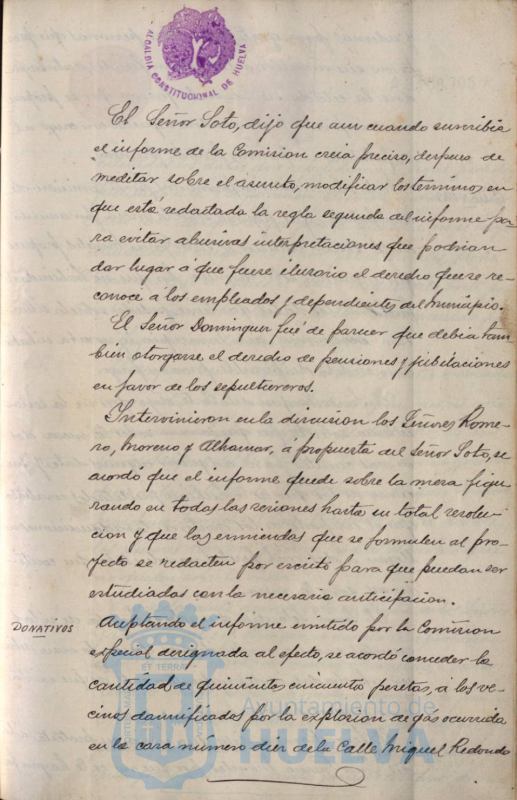 ALCALDIA CONSTITUCIONAL DE HUELVA
El Señor Soto, dijo que aun cuando suscribia
el informe de la Comision creia preciso, despues de
meditar sobre el asunto, modificar los terminos en
que está redactada la regla segunda del informe pa-
ra evitar abusivas interpretaciones que podrian
dar lugar á que fuese ilusorio el derecho que se re-
conoce á los empleados y dependientes del Municipio.
El Señor Dominguez fué de parecer que debia tam
bien otorgarse el derecho de pensiones y jubilaciones
en favor de los sepultureros.
Intervinieron en la discusion los Señores Rome-
ro, Moreno y Alhamar, á propuesta del Señor Soto, se
acordó que el informe quede sobre la mesa figu
rando en todas las sesiones hasta su total resolu-
cion y que las enmiendas que se formulen al pro-
yecto se redacten por escrito para que puedan ser
estudiadas con la necesaria anticipacion.
DONATIVOS
Aceptando el informe emitido por la Comision
especial designada al efecto, se acordó conceder la
cantidad de quinientas cincuenta pesetas, á los ve-
cinos damnificados por la explosion de gas ocurrida
en la casa número diez de la Calle Miguel Redondo
ET TERRA
Ayuntamiento de
HUELVA